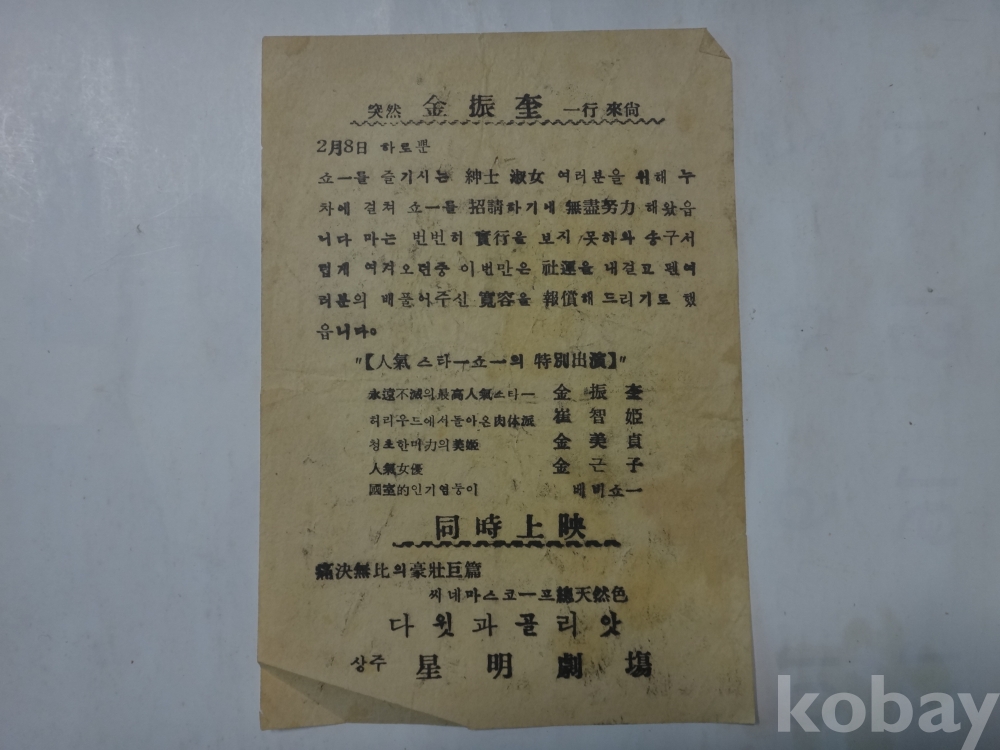 突然 金振奎 一行 來尙
2月8日 하로뿐
쇼ー를 즐기시는 紳士 淑女 여러분을 위해 누
차에 걸쳐 쇼ー를 招請하기에 無盡努力 해왔읍
니다 마는 번번히 實行을 보지 못하와 송구서
럽게 여겨오던중 이번만은 社運을 내걸고 팬여
러분의 베풀어주신 寬容을 報償해 드리기로 했
읍니다。
"【人氣 스타ー쇼ー의 特別出演】"
永遠不滅의 最高人氣스타ー 金振奎
허리우드에서돌아온肉体派 崔智姬
청초한매力의美姬 金美貞
人氣女優 金근子
國室的인기염둥이 베비쇼ー
同時上映
痛決無比의豪壯巨篇
씨네마스코ー프總天然色
다윗과골리앗
상주 星明劇場
kobay